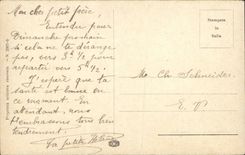 Mon cher petit frère,
Entendu pour
Dimanche prochain
si cela ne te dérange
pas, vers 3h ½ pour
repartir vers 5h ½.
J'espère que ta
santé est bonne en
ce moment. En
attendant, nous
t'embrassons tous bien
tendrement.
Ta petite
Mr Ch. Schneider.
E. V.